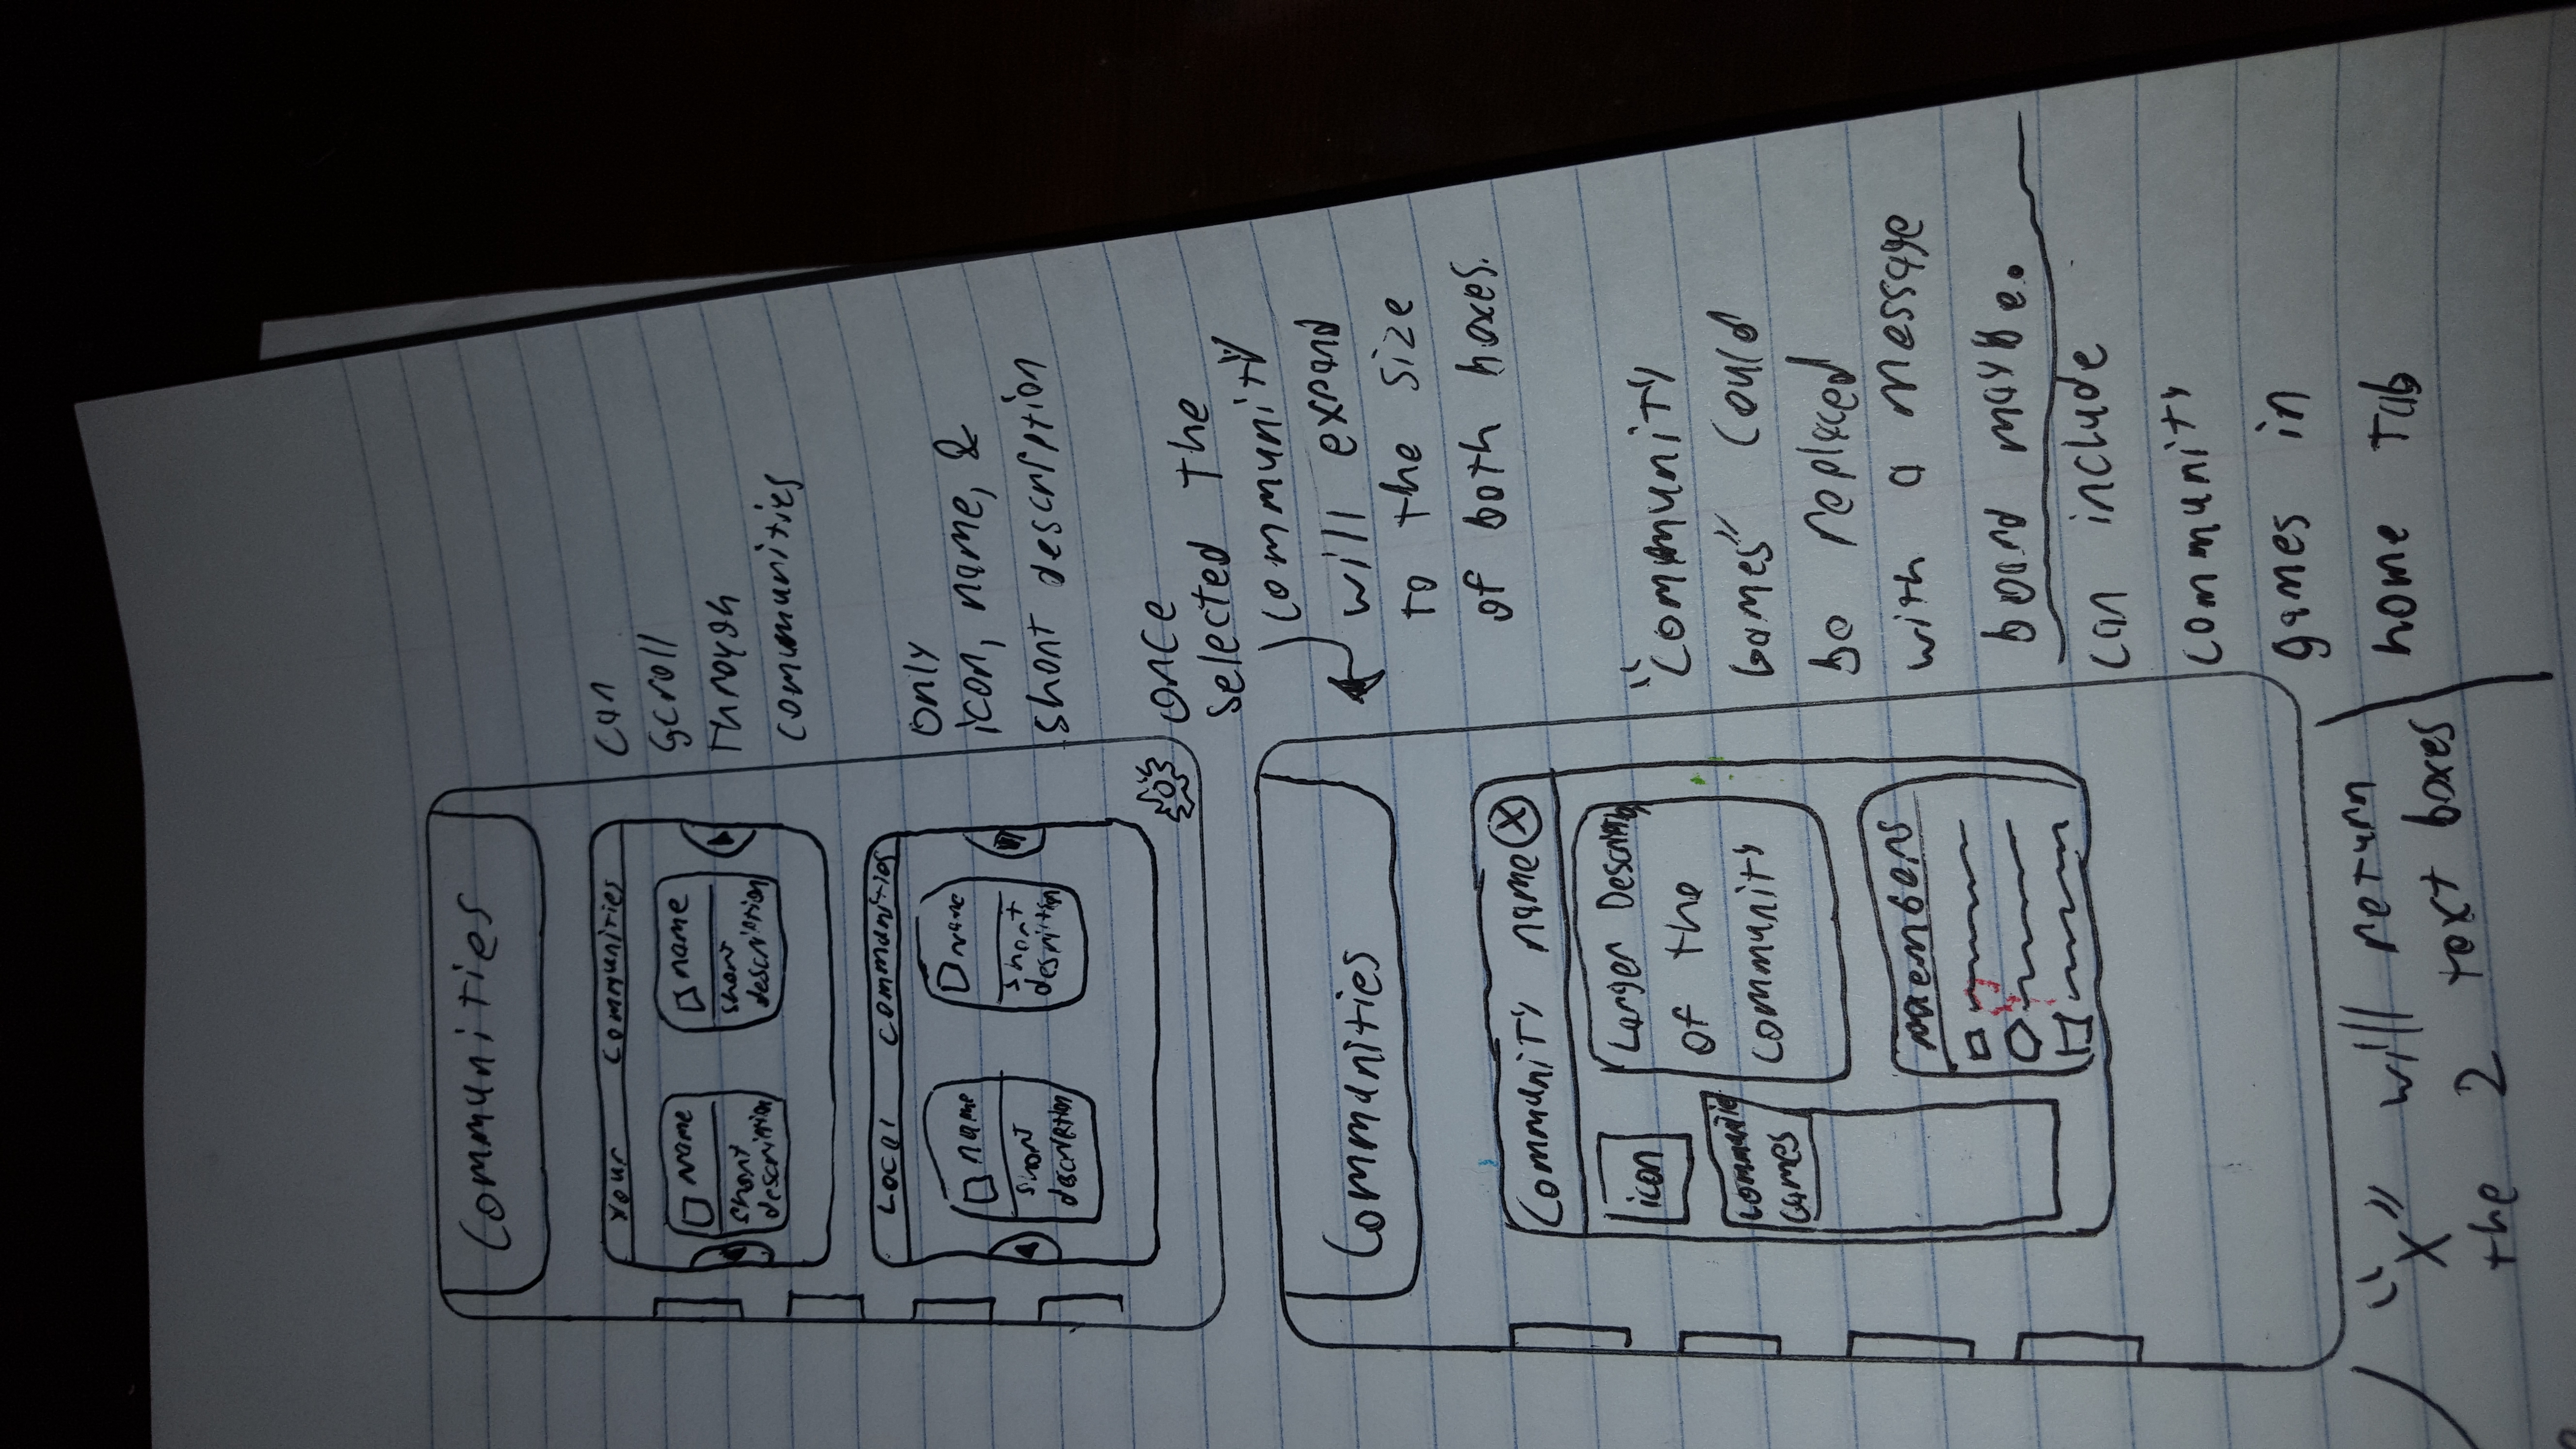 Communities
Your Communities
Name
name
short
description
short
description
Can
scroll
through
communities
Local Communities
name
name
short
description
short
Only
icon, name, &
short description
once
selected the
community
will expand
to the size
of both boxes.
Communities
Community name X
icon
Larger
of the
community
Games
Members
"Community
Games" could
be replaced
with a message
board maybe.
can include
community
games in
home tab
"X" will return
the 2 text boxes